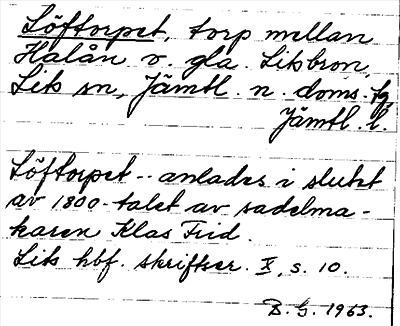 Löftorpet, torp mellan
Halån o. gla. Liksbron,
Lits sn, Jämtl. n. doms. fg,
Jämtl. l.
Löftorpet - anlades i slutet
av 1800-talet av sadelma-
karen Klas Frid.
Lits hbf. skriftser. X, s. 10.
B. G. 1963.